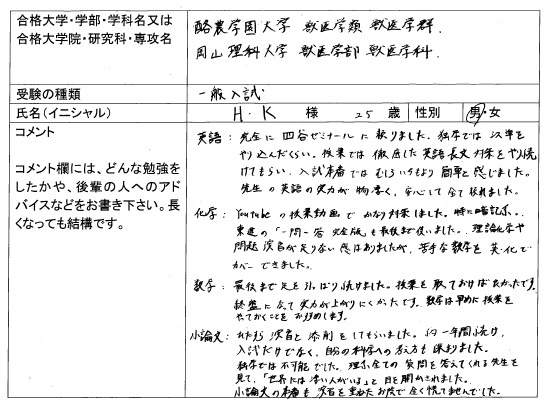 合格大学・学部・学科名又は
合格大学院・研究科・専攻名
酪農学園大学 獣医学類 獣医学群.
岡山理科大学 獣医学部 獣医学科.
受験の種類
一般入試
氏名(イニシャル)
H・K 様 25 歳 性別 男・女
コメント
コメント欄には、どんな勉強を
したかや、後輩の人へのアド
バイスなどをお書き下さい。長
くなっても結構です。
英語: 完全に四谷ゼミナールに頼りました。独学では
やり込んだくらい。授業では徹底した英語長文対策をやり続
けてもらい、入試本番ではむしろいつもより簡単と感じました。
先生の英語の実力が物凄く、安心して全て頼れました。
化学: Youtubeの授業動画でかなり対策しました。特に暗記系、
東進の「一問一答 完全版」も最後まで使いました。理論化学や
問題演習が足りない感はありましたが、苦手な数学を英・化で
カバーできました。
数学: 最後まで足を引っぱり続けました。授業を取っておけばよかったです。
終盤になって実力が上がりにくかったです。数学は早めに授業を
やっておくことをお勧めします。
小論文: ひたすら演習と添削をしてもらいました。約一年間続け、
入試だけでなく、自分の科学への考え方も深まりました。
独学では不可能でした。理系全ての質問を答えてくれる先生を
見て、「世界には凄い人がいる」と目を開かされました。
小論文の本番も演習を重ねたお陰で全く慌てませんでした。